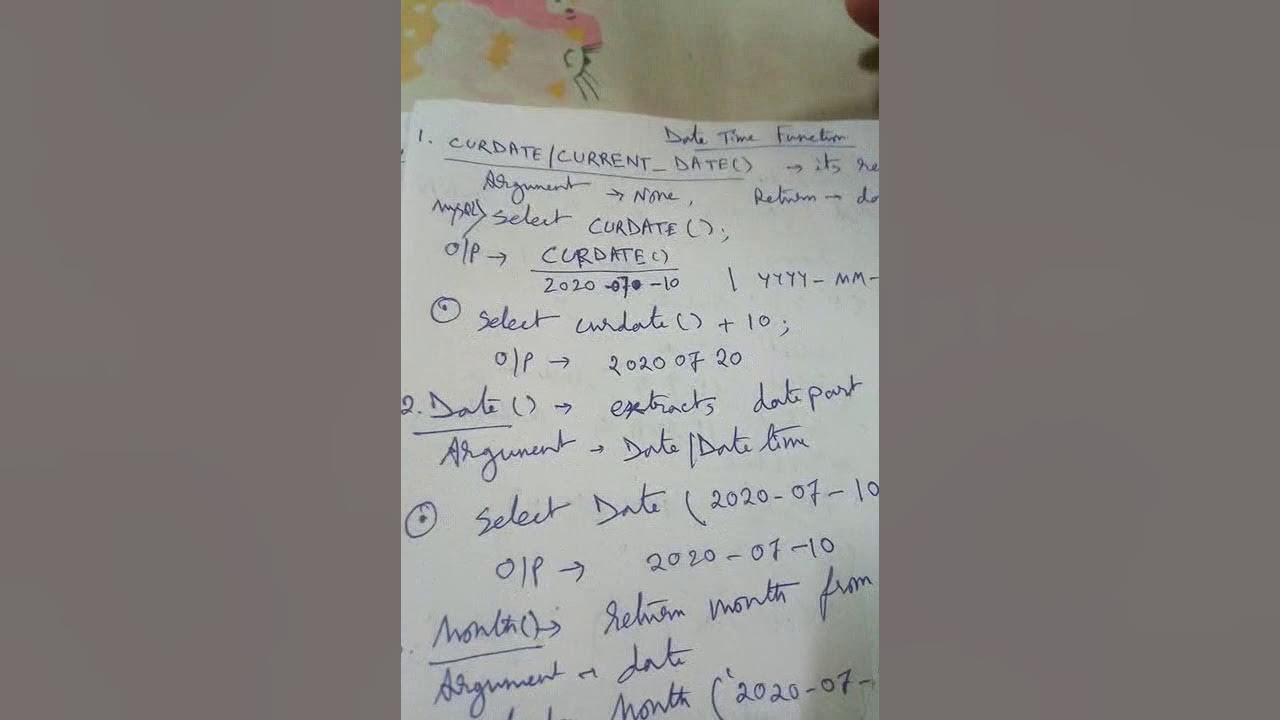 Date Time Function
1. CURDATE/CURRENT_DATE() → its re
Argument → None, Return → da
mysql> Select CURDATE();
O/P → CURDATE()
2020-07-10 | YYYY-MM-
Select curdate() + 10;
O/P → 2020 07 20
2. Date() → extracts date part
Argument → Date/Date time
Select Date (2020-07-10
O/P → 2020-07-10
Month() → return month from
Argument → date
Month ('2020-07-